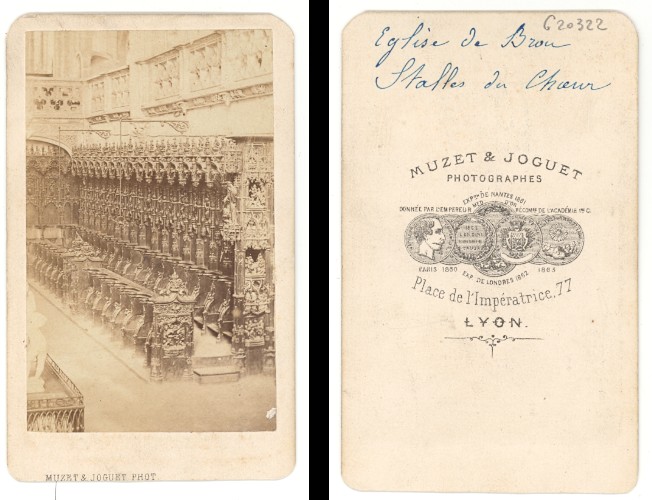 MUZET & JOGUET PHOT.
G20322
Eglise de Brou
Stalles du Chœur
MUZET & JOGUET
PHOTOGRAPHES
EXPon DE NANTES 1861
DONNÉE PAR L'EMPEREUR MED. D'OR RÉCOMPse DE L'ACADÉMIE
PARIS 1860 EXP. DE LONDRES 1862 1863
Place de l'Impératrice, 77
LYON.